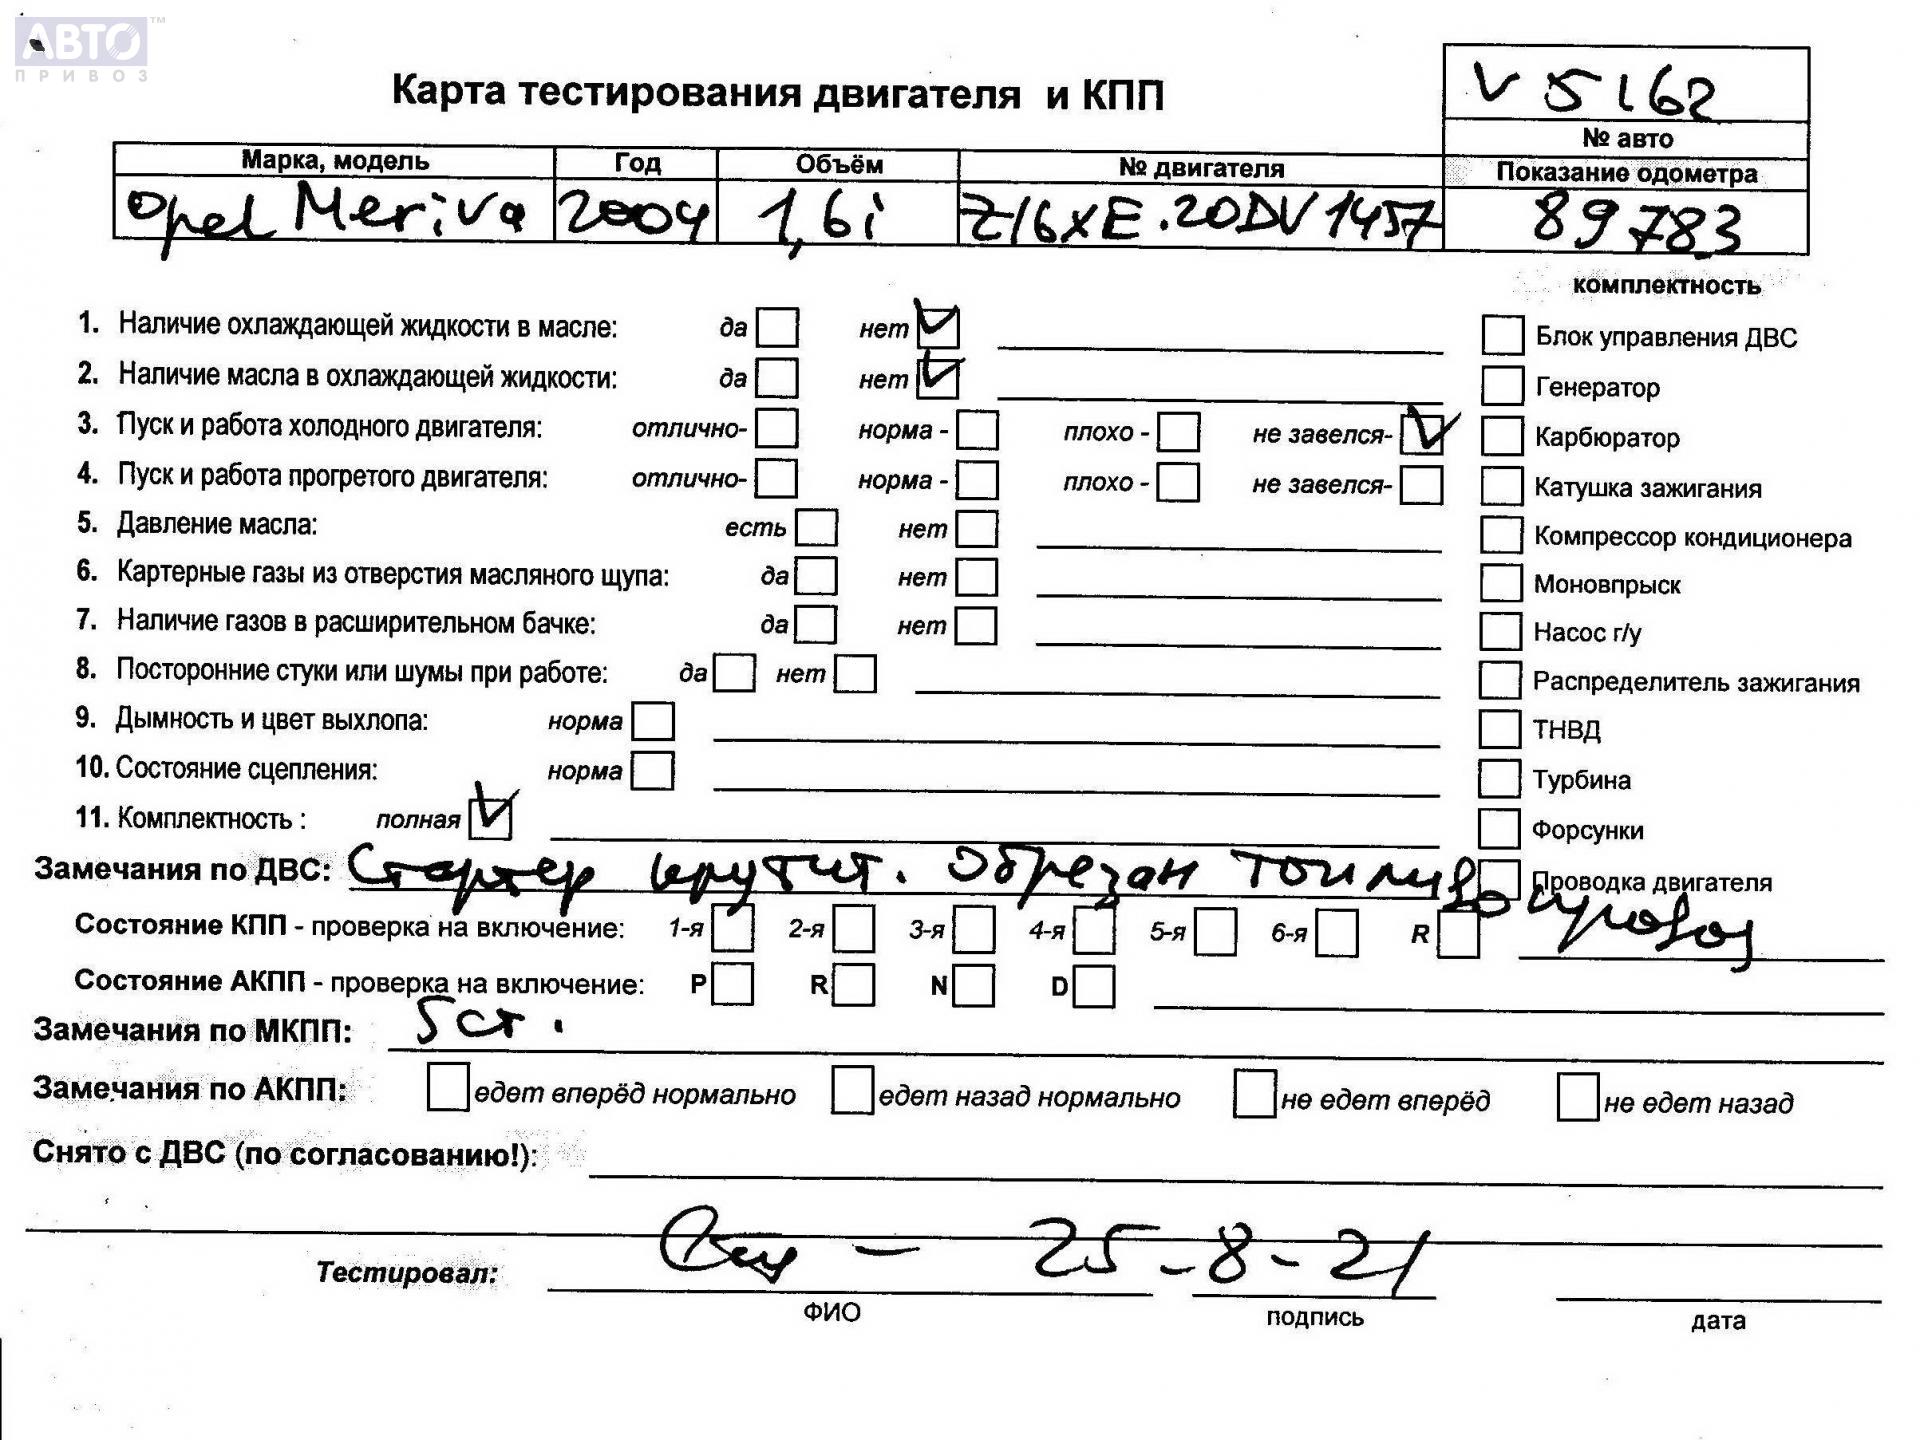 АВТО™
ПРИВОЗ
Карта тестирования двигателя и КПП
V 5162
№ авто
Марка, модель Год Объём № двигателя Показание одометра
Opel Meriva 2004 1,6i Z16XE.20DV1457 89783
комплектность
1. Наличие охлаждающей жидкости в масле: да нет Блок управления ДВС
2. Наличие масла в охлаждающей жидкости: да нет Генератор
3. Пуск и работа холодного двигателя: отлично- норма - плохо - не завелся- Карбюратор
4. Пуск и работа прогретого двигателя: отлично- норма - плохо - не завелся- Катушка зажигания
5. Давление масла: есть нет Компрессор кондиционера
6. Картерные газы из отверстия масляного щупа: да нет Моновпрыск
7. Наличие газов в расширительном бачке: да нет Насос г/у
8. Посторонние стуки или шумы при работе: да нет Распределитель зажигания
9. Дымность и цвет выхлопа: норма ТНВД
10. Состояние сцепления: норма Турбина
11. Комплектность : полная Форсунки
Замечания по ДВС: Стартер крутит. Обрезан топливо провод Проводка двигателя
Состояние КПП - проверка на включение: 1-я 2-я 3-я 4-я 5-я 6-я R
Состояние АКПП - проверка на включение: P R N D
Замечания по МКПП: 5 ст.
Замечания по АКПП: едет вперёд нормально едет назад нормально не едет вперёд не едет назад
Снято с ДВС (по согласованию!):
Тестировал: 25-8-21
ФИО подпись дата